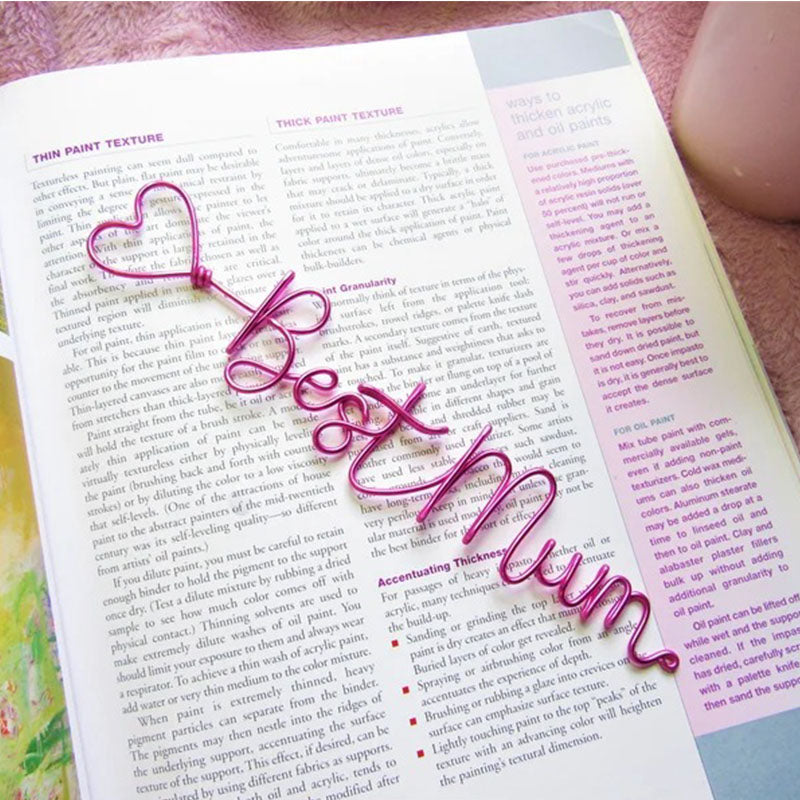 THIN PAINT TEXTURE
Textureless painting can seem dull compared to
other effects. But plain, flat paint may be desirable
in conveying a sense of restraint by
limiting the degree expressed in the
paint. Thin allows a painter to let
other aspects of the viewer's
attention. With thin applications of paint, the
character of the support is largely retained in the
final work. Therefore the fabric chosen as well as
the absorbency and are critical.
Thinned paint applied in glazes over a
textured region will diminish
underlying texture.
For oil paint, thin application is the
able. This is because thin paint
opportunity for the paint film to
counter to the movement of the
Thin-layered canvases are also
from stretchers than thick-layered
Paint straight from the tube, be it oil or
will hold the texture of a brush stroke. A
ately thin application of paint can be made
virtually textureless either by physically leveling
the paint (brushing back and forth with
strokes) or by diluting the color to a low viscosity
that self-levels. (One of the attractions of house
paint to the abstract painters of the mid-twentieth
century was its self-leveling quality—so different
from artists' oil paints.)
If you dilute paint, you must be careful to retain
enough binder to hold the pigment to the support
once dry. (Test a dilute mixture by rubbing a dried
sample to see how much color comes off with
physical contact.) Thinning solvents are used to
make extremely dilute washes of oil paint. You
should limit your exposure to them and always wear
a respirator. To achieve a thin wash of acrylic paint,
add water or very thin medium to the color mixture.
When paint is extremely thinned, heavy
pigment particles can separate from the binder.
The pigments may then nestle into the ridges of
the underlying support, accentuating the surface
texture of the support. This effect, if desired, can be
by using different fabrics as supports.
both oil and acrylic, tends to
modified after
THICK PAINT TEXTURE
Comfortable in many thicknesses, acrylics allow
adventuresome applications of paint. Conversely,
layers and layers of dense oil colors, especially on
fabric supports, ultimately become a brittle mass
that may crack or delaminate. Typically, a thick
mixture should be applied to a dry surface in order
for it to retain its character. Thick acrylic paint
applied to a wet surface will generate a "halo" of
color around the thick application of paint. Paint
thickeners can be chemical agents or physical
bulk-builders.
Paint Granularity
normally think of texture in terms of the phys-
surface left from the application tool:
brushstrokes, trowel ridges, or palette knife slash
marks. A secondary texture comes from the texture
of the paint itself. Suggestive of earth, textured
paint has a substance and weightiness that asks to
be To make it granular, texturizers are
the binder or flung on top of a pool of
become an underlayer for further
in different shapes and grain
shredded rubber may be
from are craft suppliers. Sand is
commonly used texturizer. Some artists
have used less stable such sawdust.
would seem to
long-term including cleaning
very perilous. Keep in mind
material is used may not be
the best binder for this sort of effect.
Accentuating Thickness
For passages of heavy impasto, whether oil or
acrylic, many techniques accentuate
the build-up.
Sanding or grinding the top
paint is dry creates an effect that
Buried layers of color get revealed.
Spraying or airbrushing color from an angle
accentuates the experience of depth.
Brushing or rubbing a glaze into crevices on the
surface can emphasize surface texture.
Lightly touching paint to the top "peaks" of the
texture with an advancing color will heighten
the painting's textural dimension.
Best Mum
ways to
thicken acrylic
and oil paints
FOR ACRYLIC PAINT
Use purchased pre-thick-
ened colors. Mediums with
a relatively high proportion
of acrylic resin solids (over
50 percent) will not run or
self-level. You may add a
thickening agent to an
acrylic mixture. Or mix a
few drops of thickening
agent per cup of color and
stir quickly. Alternatively,
you can add solids such as
silica, clay, and sawdust.
To recover from mis-
takes, remove layers before
they dry. It is possible to
sand down dried paint, but
it is not easy. Once impasto
is dry, it is generally best to
accept the dense surface
it creates.
FOR OIL PAINT
Mix tube paint with com-
mercially available gels,
even if adding non-paint
texturizers. Cold wax medi-
ums can also thicken oil
colors. Aluminum stearate
may be added a drop at a
time to linseed oil and
then to oil paint. Clay and
alabaster plaster fillers
bulk up without adding
additional granularity to
oil paint.
Oil paint can be lifted off
while wet and the suppo
cleaned. If the impas
has dried, carefully scra
with a palette knife
then sand the suppo